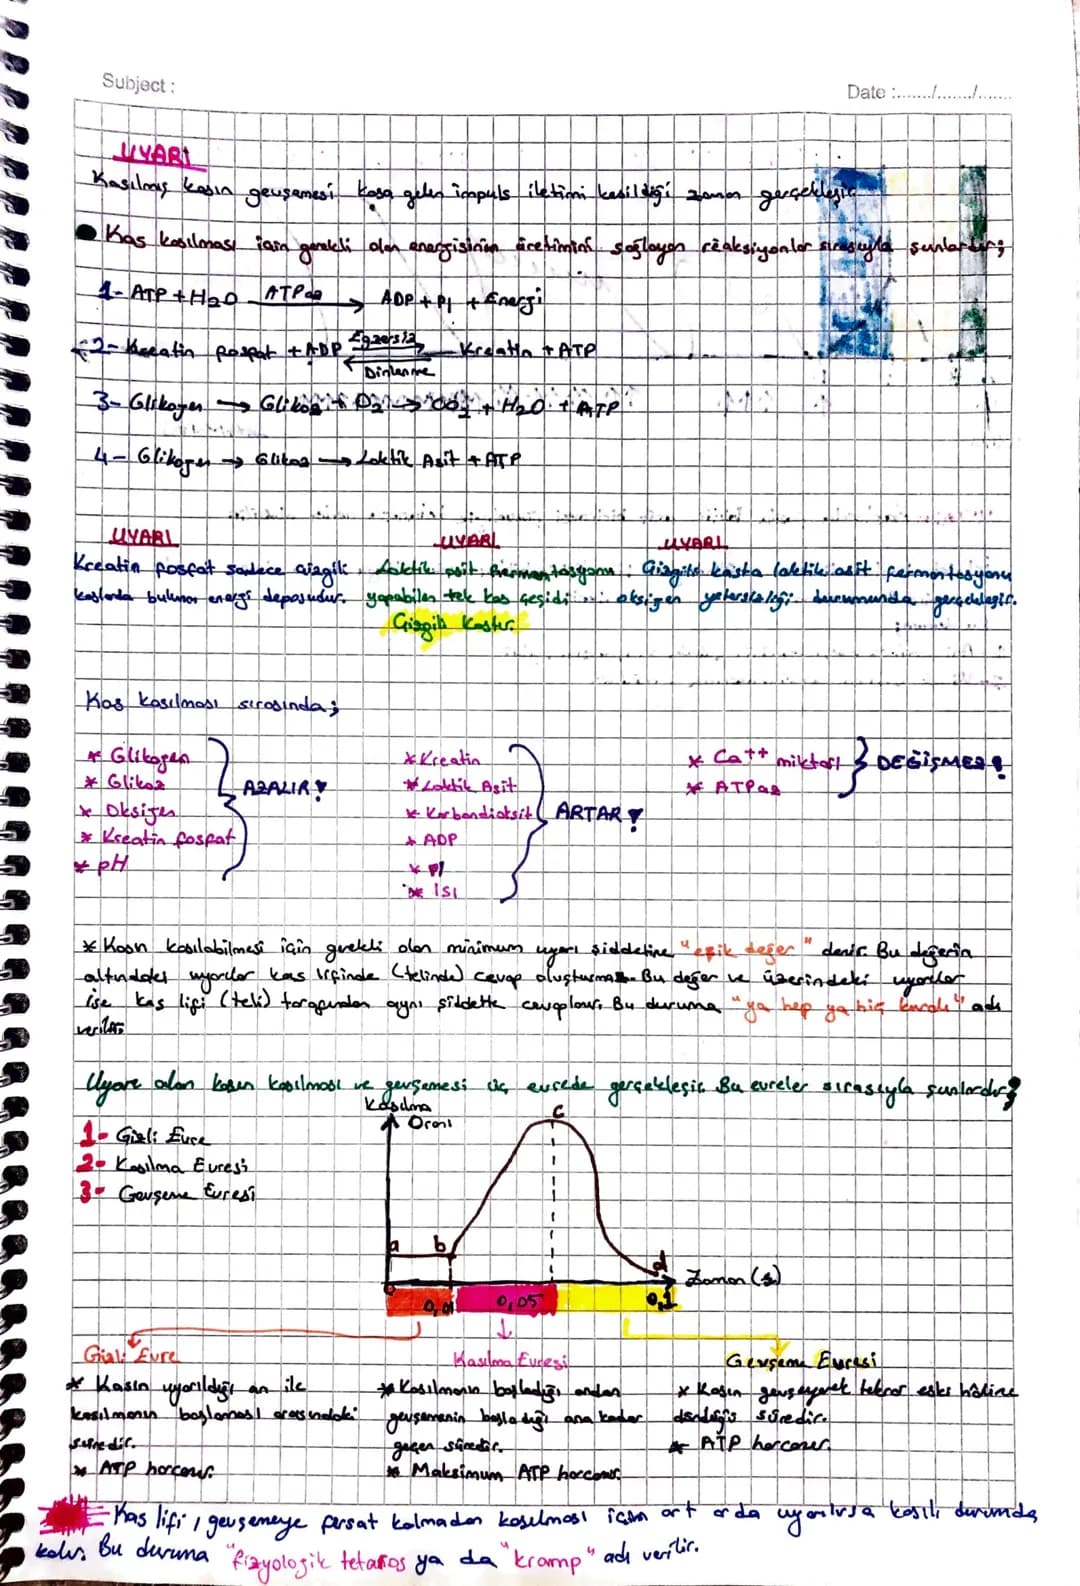 Subject :
Date :......./......./.......
UYARI
Kasılmış kasın gevşemesi kasa gelen impuls iletimi kesildiği zaman gerçekleşir
● Kas kasılması için gerekli olan enerjisinin üretimini sağlayan reaksiyonlar sırasıyla şunlardır;
1- ATP + H2O ATPaz → ADP + Pi + Enerji
2- Kreatin fosfat + ADP Egzersiz Kreatin + ATP
Dinlenme
3- Glikojen → Glikoz + O2 → CO2 + H2O + ATP
4- Glikojen → Glikoz → Laktik Asit + ATP
UYARI UYARI UYARI
Kreatin fosfat sadece çizgili
kaslarda bulunan enerji deposudur.
Laktik asit fermantasyonu
yapabilen tek kas çeşidi
Çizgili Kastır.
Çizgili kasta laktik asit fermantasyonu
oksijen yetersizliği durumunda gerçekleşir.
Kas kasılması sırasında;
* Glikojen
* Glikoz
* Oksijen
* Kreatin fosfat
* pH
AZALIR!
* Kreatin
* Laktik Asit
* Karbondioksit
* ADP
* Pi
* Isı
ARTAR!
* Ca++ miktarı
* ATPaz
DEĞİŞMEZ!
* Kasın kasılabilmesi için gerekli olan minimum uyarı şiddetine "eşik değer" denir. Bu değerin
altındaki uyarılar kas lifinde (telinde) cevap oluşturmaz. Bu değer ve üzerindeki uyarılar
ise kas lifi (teli) tarafından aynı şiddette cevaplanır. Bu duruma "ya hep ya hiç kuralı" adı
verilir.
Uyarı alan kasın kasılması ve gevşemesi üç evrede gerçekleşir. Bu evreler sırasıyla şunlardır;
1- Gizli Evre
2- Kasılma Evresi
3- Gevşeme Evresi
Kasılma
Oranı
c
a b
d
Zaman (s)
0 0,01 0,05 0,1
Gizli Evre
* Kasın uyarıldığı an ile
kasılmanın başlaması arasındaki
süredir.
* ATP harcanır.
Kasılma Evresi
* Kasılmanın başladığı andan
gevşemenin başladığı ana kadar
geçen süredir.
* Maksimum ATP harcanır.
Gevşeme Evresi
* Kasın gevşeyerek tekrar eski hâline
döndüğü süredir.
* ATP harcanır.
Kas lifi, gevşemeye fırsat kalmadan kasılması için art arda uyarılırsa kasılı durumda
kalır. Bu duruma "fizyolojik tetanos ya da "kramp" adı verilir.